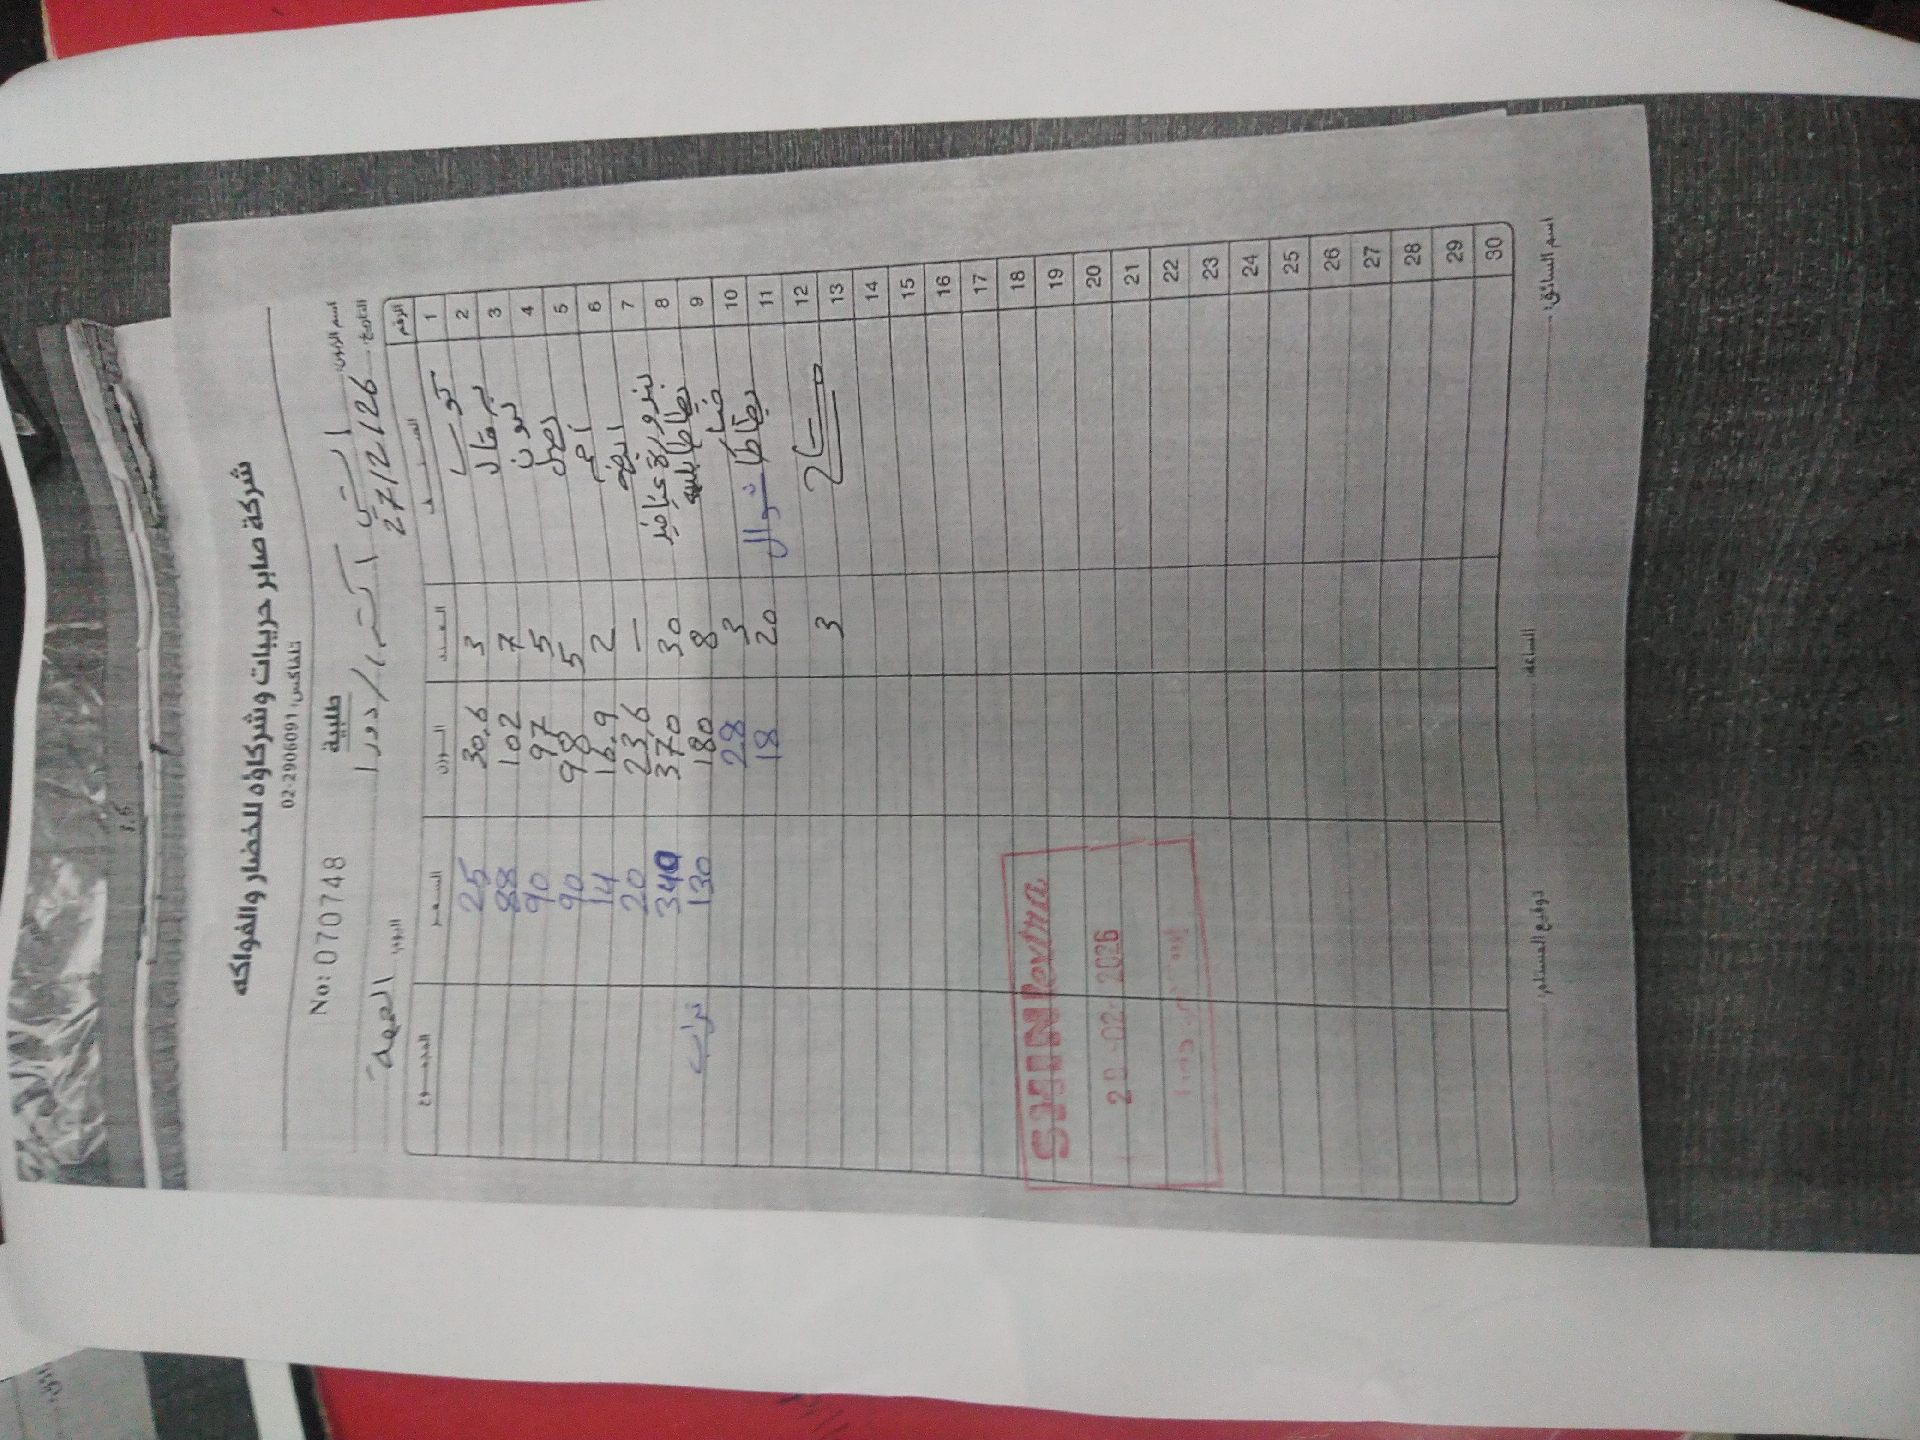 شركة صابر حريبات وشركاؤه للخضار والفواكه
تلفاكس: 02-2906091
No: 070748
طلبية
اسم الزبون:
اكسترا / دورا
التاريخ: 27/2/26
اليوم: الجمعة
الرقم الصنف العدد الوزن السعر المجموع
1
2 3 30.6 25
3 برتقال 7 102 88
4 ليمون 5 97 90
5 بصل 5 98 90
6 2 16.9 14
7 — 23.6 20
8 بندورة 30 370 340
9 بطاطا 8 180 130 تراب
10 خيار 3 28
11 بطاطا شوال 20 18
12
13 3
14
15
16
17
18
19
20
21
22
23
24
25
26
27
28
29
30
SHINI extra
02-2026
اسم السائق:
الساعة
توقيع المستلم: